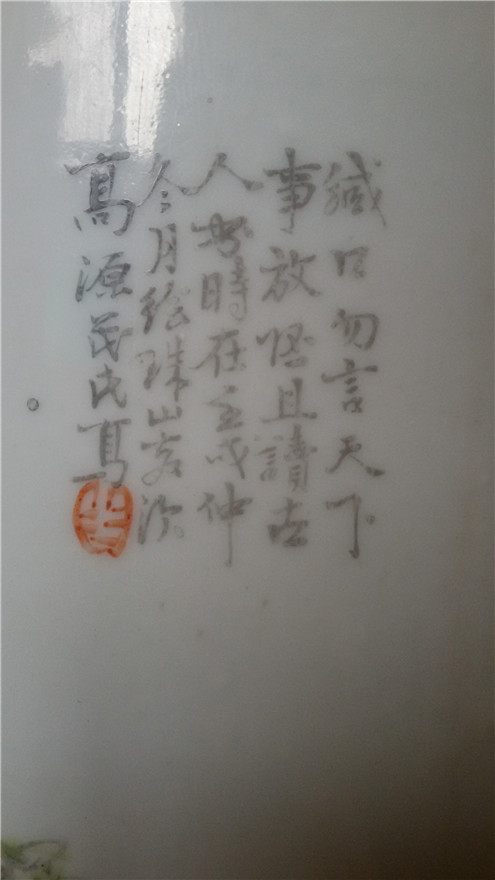 緘口勿言天下
事放懷且讀古
人書時在壬戌仲
冬月绘珠山客次
高源茂氏寫